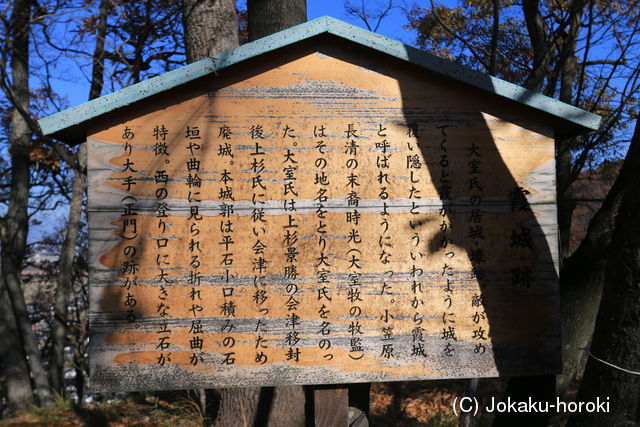 霞城跡
大室氏の居城・
敵が攻め
てくると霞がかかったように城を
覆い隠したといういわれから霞城
と呼ばれるようになった。小笠原
長清の末裔時光(大室牧の牧監)
はその地名をとり大室氏を名のっ
た。大室氏は上杉景勝の会津移封
後上杉氏に従い会津に移ったため
廃城。本城郭は平石小口積みの石
垣や曲輪に見られる折れや屈曲が
特徴。西の登り口に大きな立石が
あり大手(正門)の跡がある。
(C) Jokaku-horoki